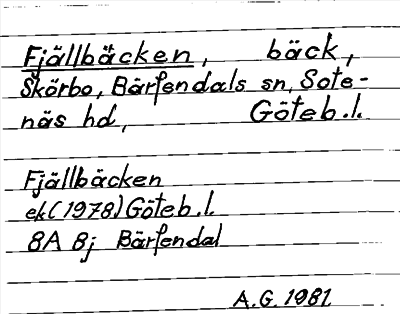 Fjällbäcken, bäck,
Skörbo, Bärfendals sn, Sote-
näs hd, Göteb.l.
Fjällbäcken
ek(1978) Göteb.l.
8A 8j Bärfendal
A.G. 1981